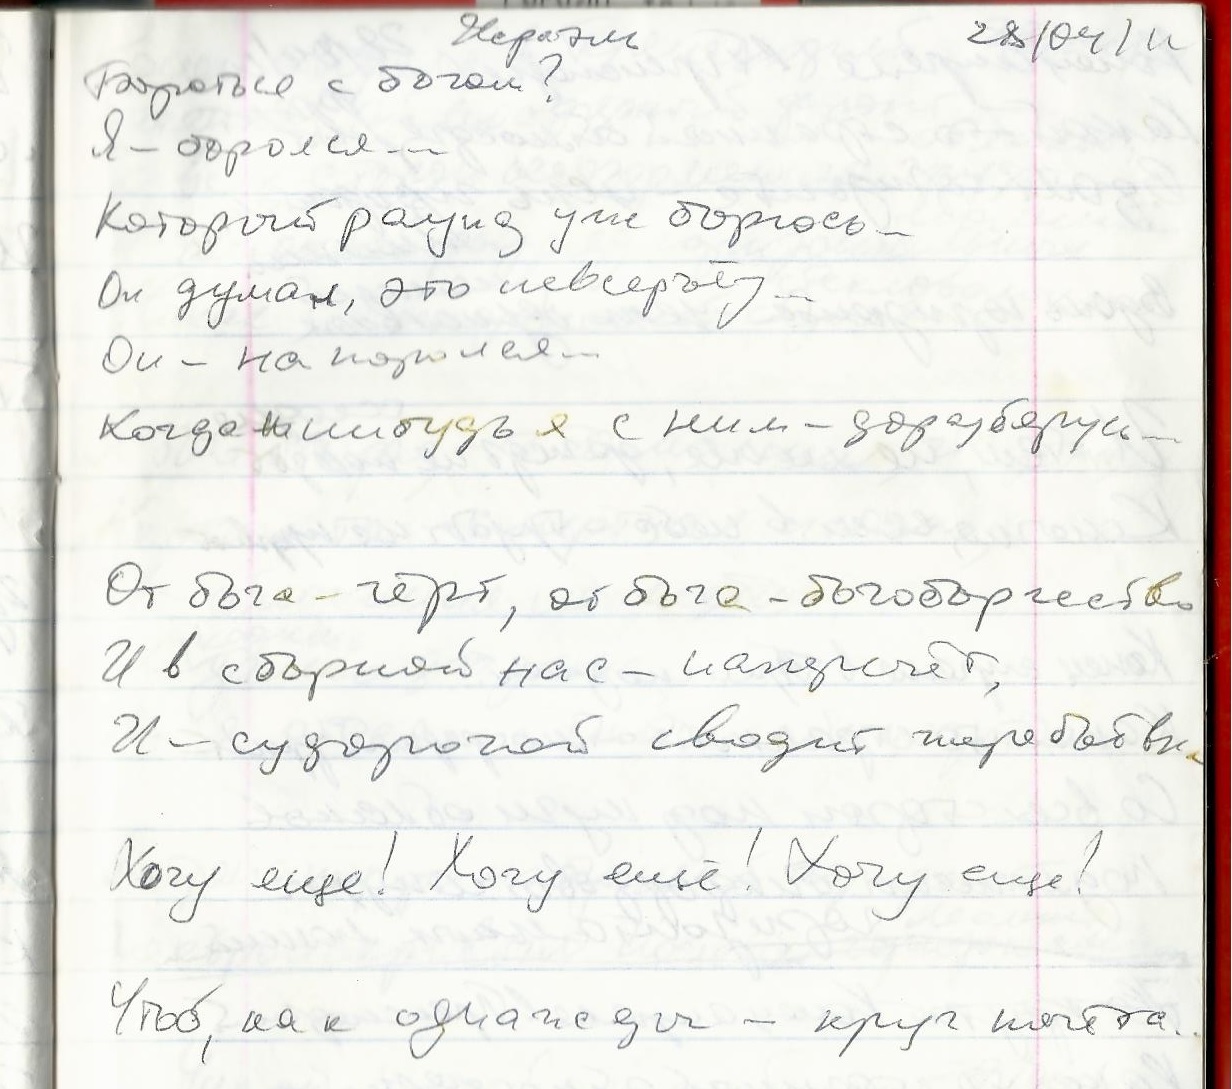 Израэль 28/04/11
Бороться с богом?
Я – боролся...
Который раунд уже борюсь...
Он думал, это невсерьёз...
Он – напоролся...
Когда нибудь я с ним – доразберусь...
От бога – чёрт, от бога – богоборчество
И в сборной нас – наперечёт,
И – судорогой сводит
Хочу еще! Хочу ещё! Хочу еще!
Чтоб, как однажды – круг почёта...